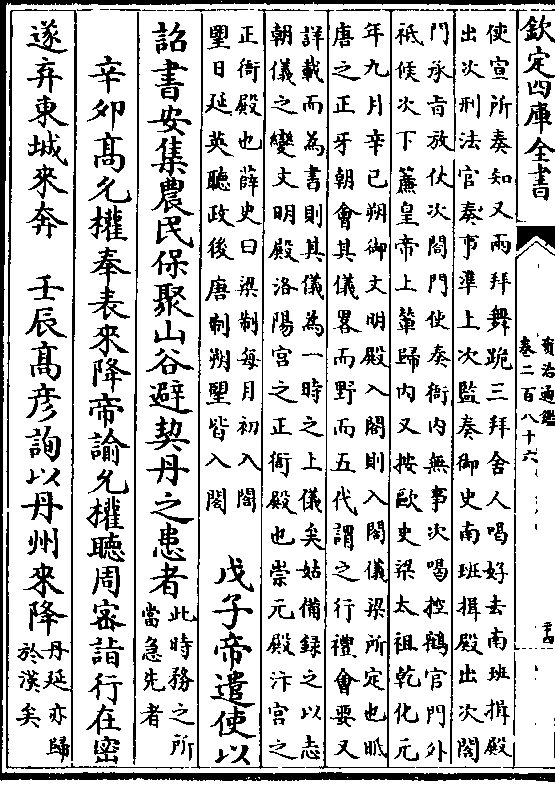 欽定四庫全書
資治通鑑
卷二百八十六
使宣所奏知又兩拜舞跪三拜舍人喝好去南班揖殿
出次刑法官奏事準上次監奏御史南班揖殿出次閤
門承旨放仗次閤門使奏衙内無事次喝控鶴官門外
祗候次下簾皇帝上輦歸内又按歐史梁太祖乾化元
年九月辛巳朔御文明殿入閤則入閤儀梁所定也眡
唐之正牙朝會其儀畧而野而五代謂之行禮會要又
詳載而為書則其儀為一時之上儀矣姑備録之以志
朝儀之變文明殿洛陽宫之正衙殿也崇元殿汴宫之
正衙殿也薛史曰梁制每月初入閤
朢日延英聽政後唐制朔朢皆入閤
戊子帝遣使以
詔書安集農民保聚山谷避契丹之患者
此時務之所
當急先者
辛卯髙允權奉表來降帝諭允權聽周審詣行在密
遂弃東城來奔　壬辰髙彦詢以丹州來降
丹延亦歸
於漢矣